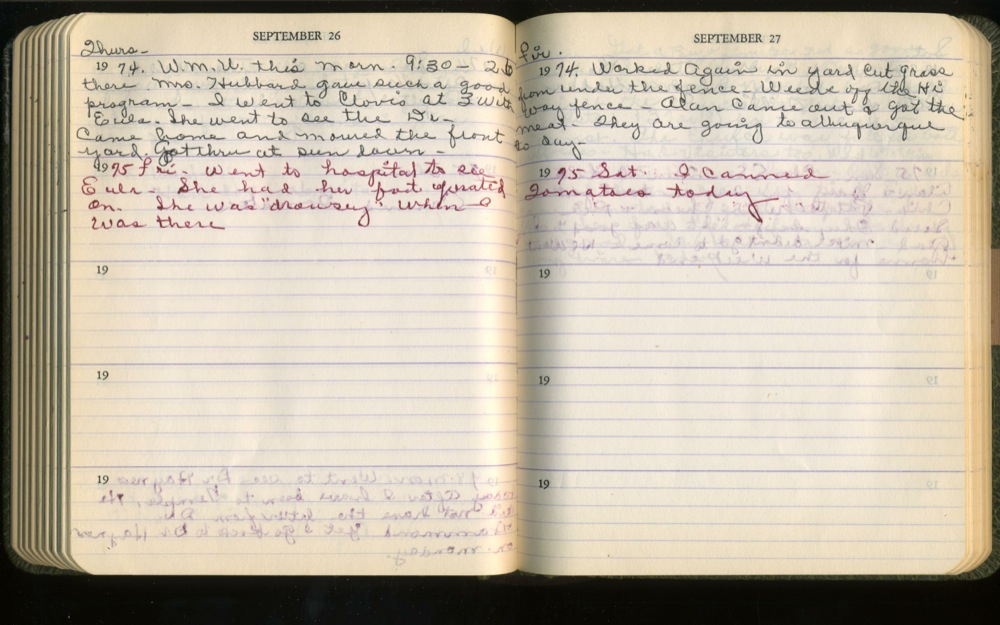 SEPTEMBER 26
Thurs-
1974. W.M.U. this morn. 9:30- 26
there Mrs. Hubbard gave such a good
program- I went to Clovis at 3 with
Eula. She went to see the Dr-
Came home and mowed the front
yard. Got thru at sun down-
1975 Fri. Went to hospital to see
Eula- She had her foot operated
on. She was "drowsey" when I
was there
19
19
19
SEPTEMBER 27
Fri.
1974. Worked Again in yard cut grass
from under the fence- Weeds off the Hi
way fence- Alan Came out & got the
meat- They are going to albuquerque
to day-
1975 Sat. I Canned
Tomatoes today
19
19
19